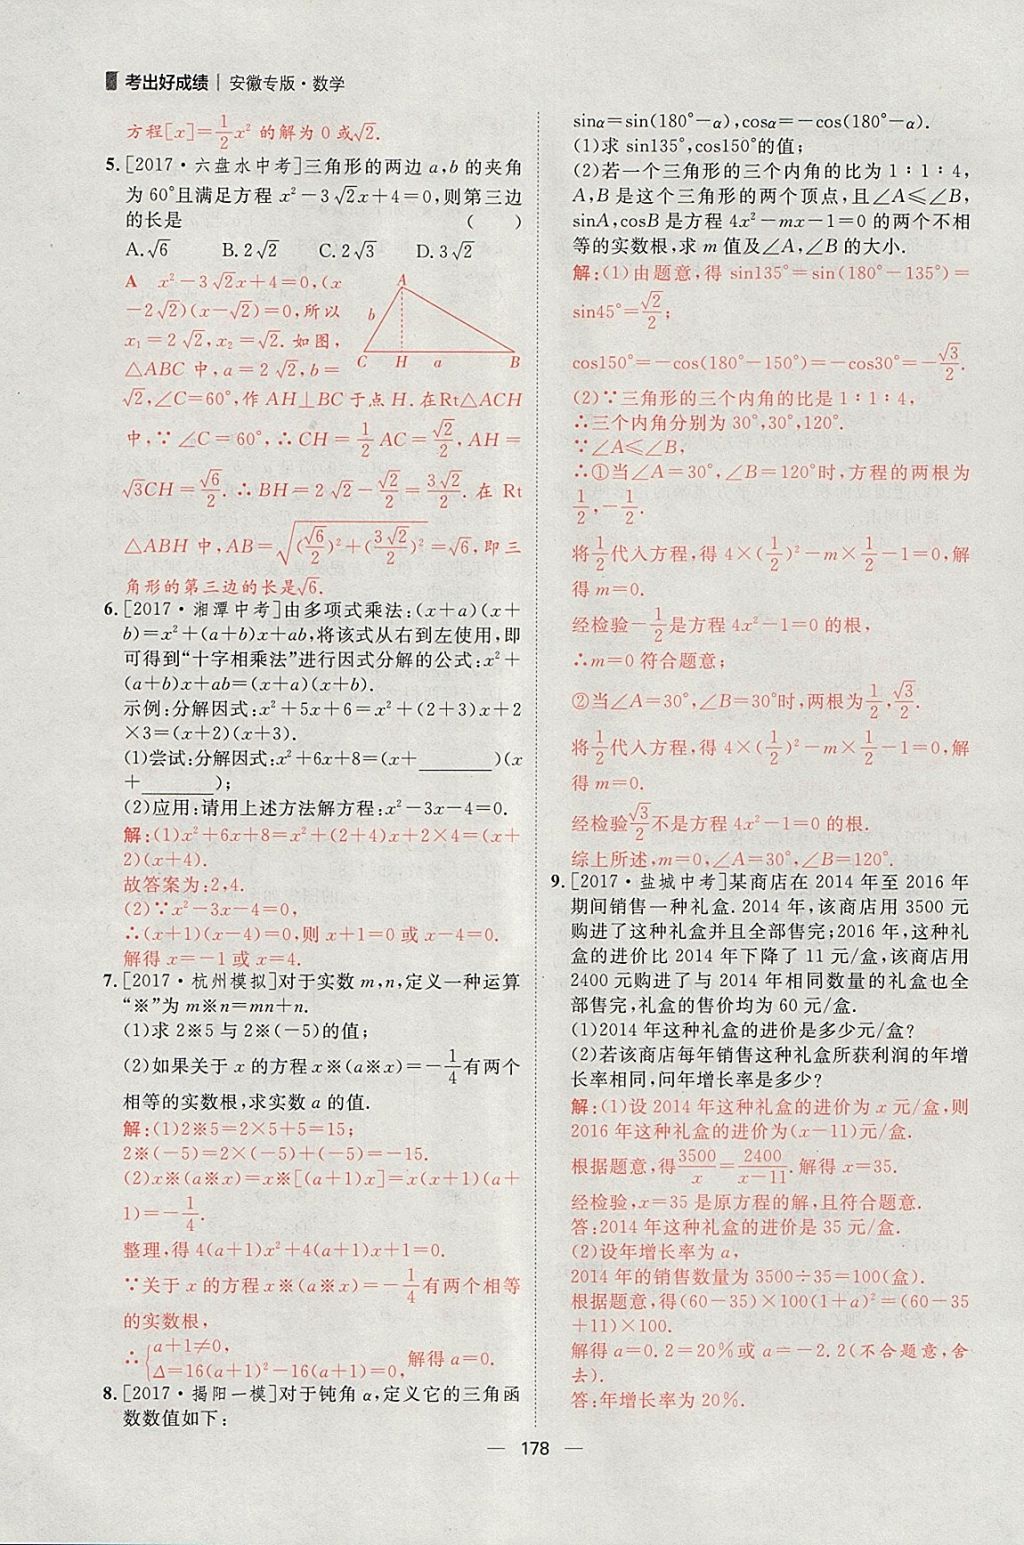 考出好成绩 | 安徽专版·数学
方程[x]=1/2x²的解为0或√2.
5.[2017·六盘水中考]三角形的两边a,b的夹角
为60°且满足方程x²-3√2x+4=0,则第三边
的长是 (  )
A.√6 B.2√2 C.2√3 D.3√2
A x²-3√2x+4=0,(x
-2√2)(x-√2)=0,所以
x₁=2√2,x₂=√2.如图,
△ABC中,a=2√2,b=
A
b
C H a B
√2,∠C=60°,作AH⊥BC于点H.在Rt△ACH
中,∵∠C=60°,∴CH=1/2AC=√2/2,AH=
√3CH=√6/2.∴BH=2√2-√2/2=3√2/2.在Rt
△ABH中,AB=√((√6/2)²+(3√2/2)²)=√6,即三
角形的第三边的长是√6.
6.[2017·湘潭中考]由多项式乘法:(x+a)(x+
b)=x²+(a+b)x+ab,将该式从右到左使用,即
可得到“十字相乘法”进行因式分解的公式:x²+
(a+b)x+ab=(x+a)(x+b).
示例:分解因式:x²+5x+6=x²+(2+3)x+2
×3=(x+2)(x+3).
(1)尝试:分解因式:x²+6x+8=(x+________)(x
+________);
(2)应用:请用上述方法解方程:x²-3x-4=0.
解:(1)x²+6x+8=x²+(2+4)x+2×4=(x+
2)(x+4).
故答案为:2,4.
(2)∵x²-3x-4=0,
∴(x+1)(x-4)=0,则x+1=0或x-4=0.
解得x=-1或x=4.
7.[2017·杭州模拟]对于实数m,n,定义一种运算
“※”为m※n=mn+n.
(1)求2※5与2※(-5)的值;
(2)如果关于x的方程x※(a※x)=-1/4有两个
相等的实数根,求实数a的值.
解:(1)2※5=2×5+5=15;
2※(-5)=2×(-5)+(-5)=-15.
(2)x※(a※x)=x※[(a+1)x]=x(x+1)(a+
1)=-1/4.
整理,得4(a+1)x²+4(a+1)x+1=0.
∵关于x的方程x※(a※x)=-1/4有两个相等
的实数根,
∴{a+1≠0,
Δ=16(a+1)²-16(a+1)=0, 解得a=0.
8.[2017·揭阳一模]对于钝角α,定义它的三角函
数数值如下:
sinα=sin(180°-α),cosα=-cos(180°-α).
(1)求sin135°,cos150°的值;
(2)若一个三角形的三个内角的比为1∶1∶4,
A,B是这个三角形的两个顶点,且∠A≤∠B,
sinA,cosB是方程4x²-mx-1=0的两个不相
等的实数根,求m值及∠A,∠B的大小.
解:(1)由题意,得sin135°=sin(180°-135°)=
sin45°=√2/2;
cos150°=-cos(180°-150°)=-cos30°=-√3/2.
(2)∵三角形的三个内角的比是1∶1∶4,
∴三个内角分别为30°,30°,120°.
∵∠A≤∠B,
∴①当∠A=30°,∠B=120°时,方程的两根为
1/2,-1/2.
将1/2代入方程,得4×(1/2)²-m×1/2-1=0,解
得m=0.
经检验-1/2是方程4x²-1=0的根,
∴m=0符合题意;
②当∠A=30°,∠B=30°时,两根为1/2,√3/2.
将1/2代入方程,得4×(1/2)²-m×1/2-1=0,解
得m=0.
经检验√3/2不是方程4x²-1=0的根.
综上所述,m=0,∠A=30°,∠B=120°.
9.[2017·盐城中考]某商店在2014年至2016年
期间销售一种礼盒.2014年,该商店用3500元
购进了这种礼盒并且全部售完;2016年,这种礼
盒的进价比2014年下降了11元/盒,该商店用
2400元购进了与2014年相同数量的礼盒也全
部售完,礼盒的售价均为60元/盒.
(1)2014年这种礼盒的进价是多少元/盒?
(2)若该商店每年销售这种礼盒所获利润的年增
长率相同,问年增长率是多少?
解:(1)设2014年这种礼盒的进价为x元/盒,则
2016年这种礼盒的进价为(x-11)元/盒.
根据题意,得3500/x=2400/(x-11).解得x=35.
经检验,x=35是原方程的解,且符合题意.
答:2014年这种礼盒的进价是35元/盒.
(2)设年增长率为a,
2014年的销售数量为3500÷35=100(盒).
根据题意,得(60-35)×100(1+a)²=(60-35
+11)×100.
解得a=0.2=20%或a=-2.2(不合题意,舍
去).
答:年增长率为20%.
— 178 —